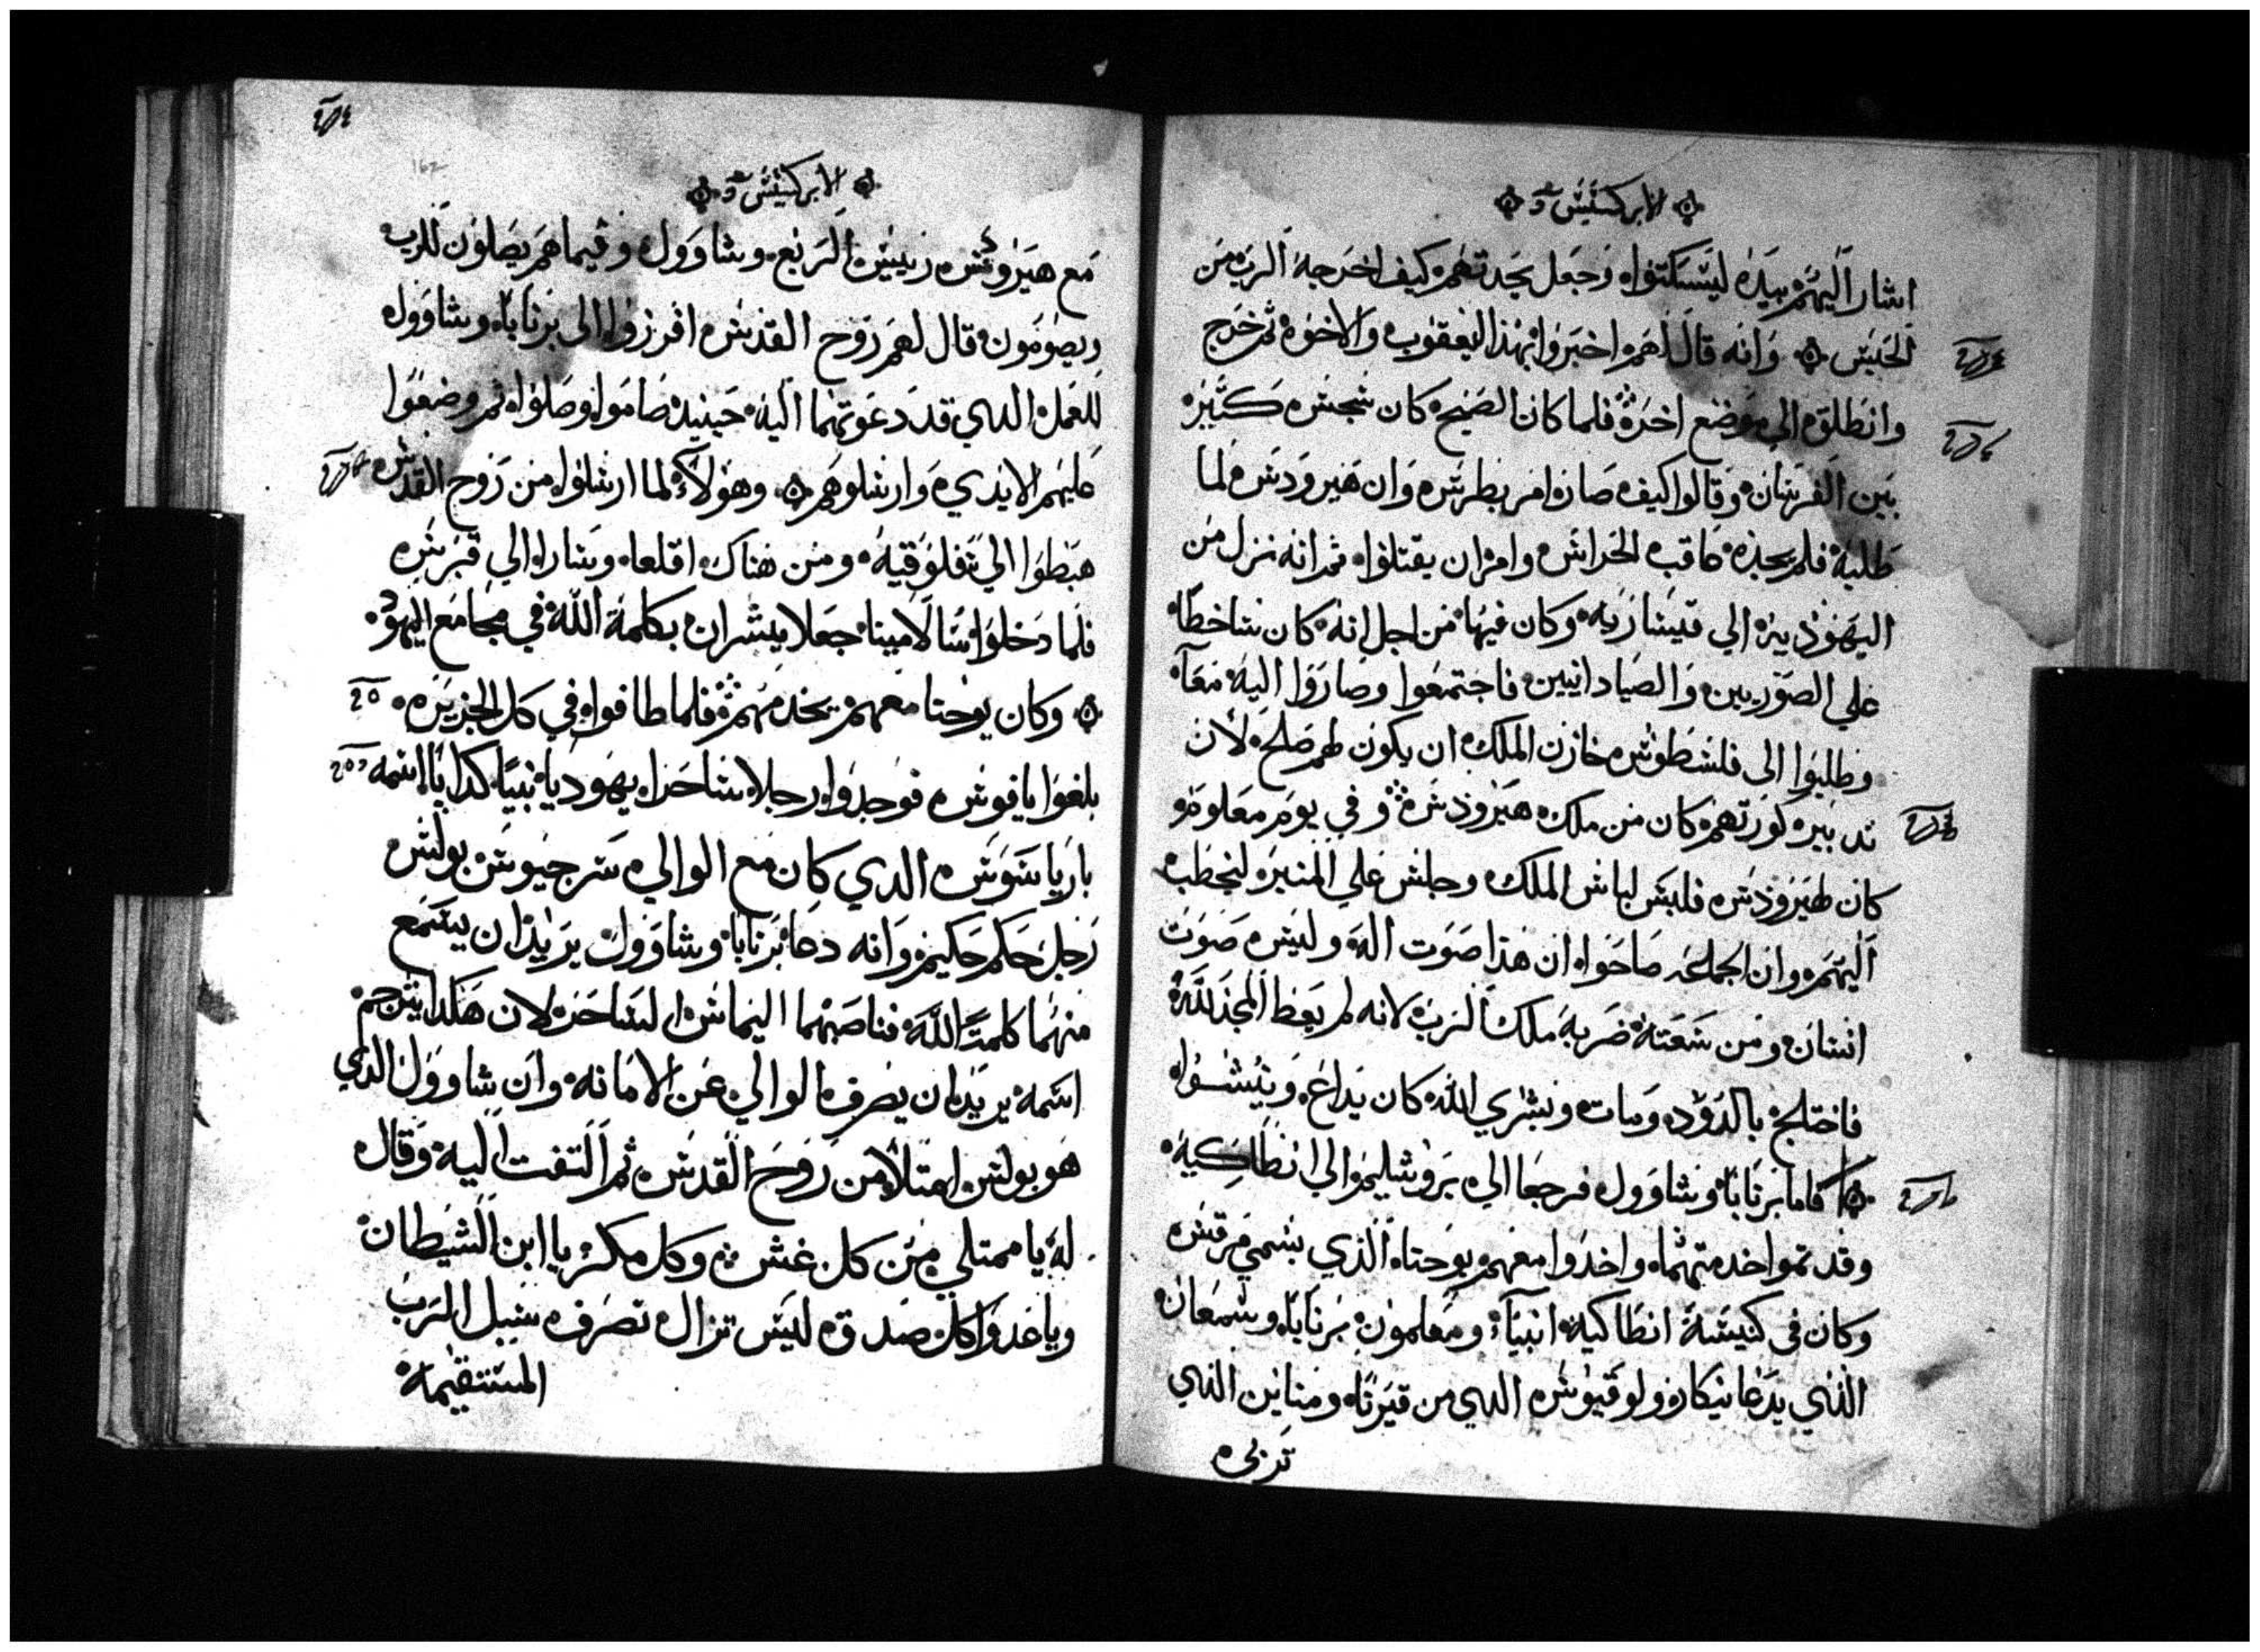 الابركسيس
اشار اليهم بيده ليسكتوا وجعل يحدتهم كيف اخرجه الرب من
الحبس وانه قال لهم اخبروا بهذا اليعقوب والاخوه ثم خرج
وانطلق الي موضع اخر فلما كان الصبح كان شجس كثير
بين الفرسان وقالوا كيف صار امر بطرس وان هيرودس لما
طلبه فلم يجده عاقب الحراس وامر ان يقتلوا ثم انه نزل من
اليهوديه الي قيساريه وكان فيها من اجل انه كان ساخطا
علي الصوريين والصيادانيين فاجتمعوا وصاروا اليه معا
وطلبوا الى فلسطوس خازن الملك ان يكون لهم صلح لان
تدبير كورتهم كان من ملك هيرودس وفي يوم معلوم
كان لهيرودس فلبس لباس الملك وجلس علي المنبر ليخطب
اليهم وان الجماعه صاحوا ان هذا صوت اله وليس صوت
انسان ومن سعته ضربه ملك الرب لانه لم يعط المجد لله
فاختلج بالدود ومات وبشري الله كان يداع ويشوا
فاما برنابا وشاوول فرجعا الي يروشليم الي انطاكيه
وقد تموا خدمتهما واخدوا معهم يوحنا الذي يسمي مرقس
وكان في كنيسة انطاكيه انبياء ومعلمون برنابا وسمعان
الذي يدعا نيكار ولوقيوس الدي من قيرنا ومناين الذي
تربى
الابركسيس
مع هيرودس رييس الربع وشاوول وفيما هم يصلون للرب
ويصومون قال لهم روح القدس افرزوا الى برنابا وشاوول
للعمل الدي قد دعوتهما اليه حينيد صاموا وصلوا ثم وضعوا
عليهم الايدي وارسلوهم وهولاء لما ارسلوا من روح القدس
هبطوا الي سفلوقيه ومن هناك اقلعا وسارا الي قبرس
فلما دخلوا سالامينا جعلا يبشران بكلمة الله في مجامع اليهود
وكان يوحنا معهم يخدمهم فلما طافوا في كل الجزيره
بلغوا يافوس فوجدوا رجلا ساحرا يهوديا نبيا كدابا اسمه
بارياسوس الدي كان مع الوالي سرجيوس بولس
رجل حكم حكيم وانه دعا برنابا وشاوول يريد ان يسمع
منهما كلمة الله فناصبهما اليماس الساحر لان هكدا يترجم
اسمه يريد ان يصرف الوالي عن الامانه وان شاوول الدي
هو بولس امتلا من روح القدس ثم التفت اليه وقال
له يا ممتلي من كل غش وكل مكر يا ابن الشيطان
ويا عدوا كل صدق ليس تزال تصرف سبيل الرب
المستقيمه